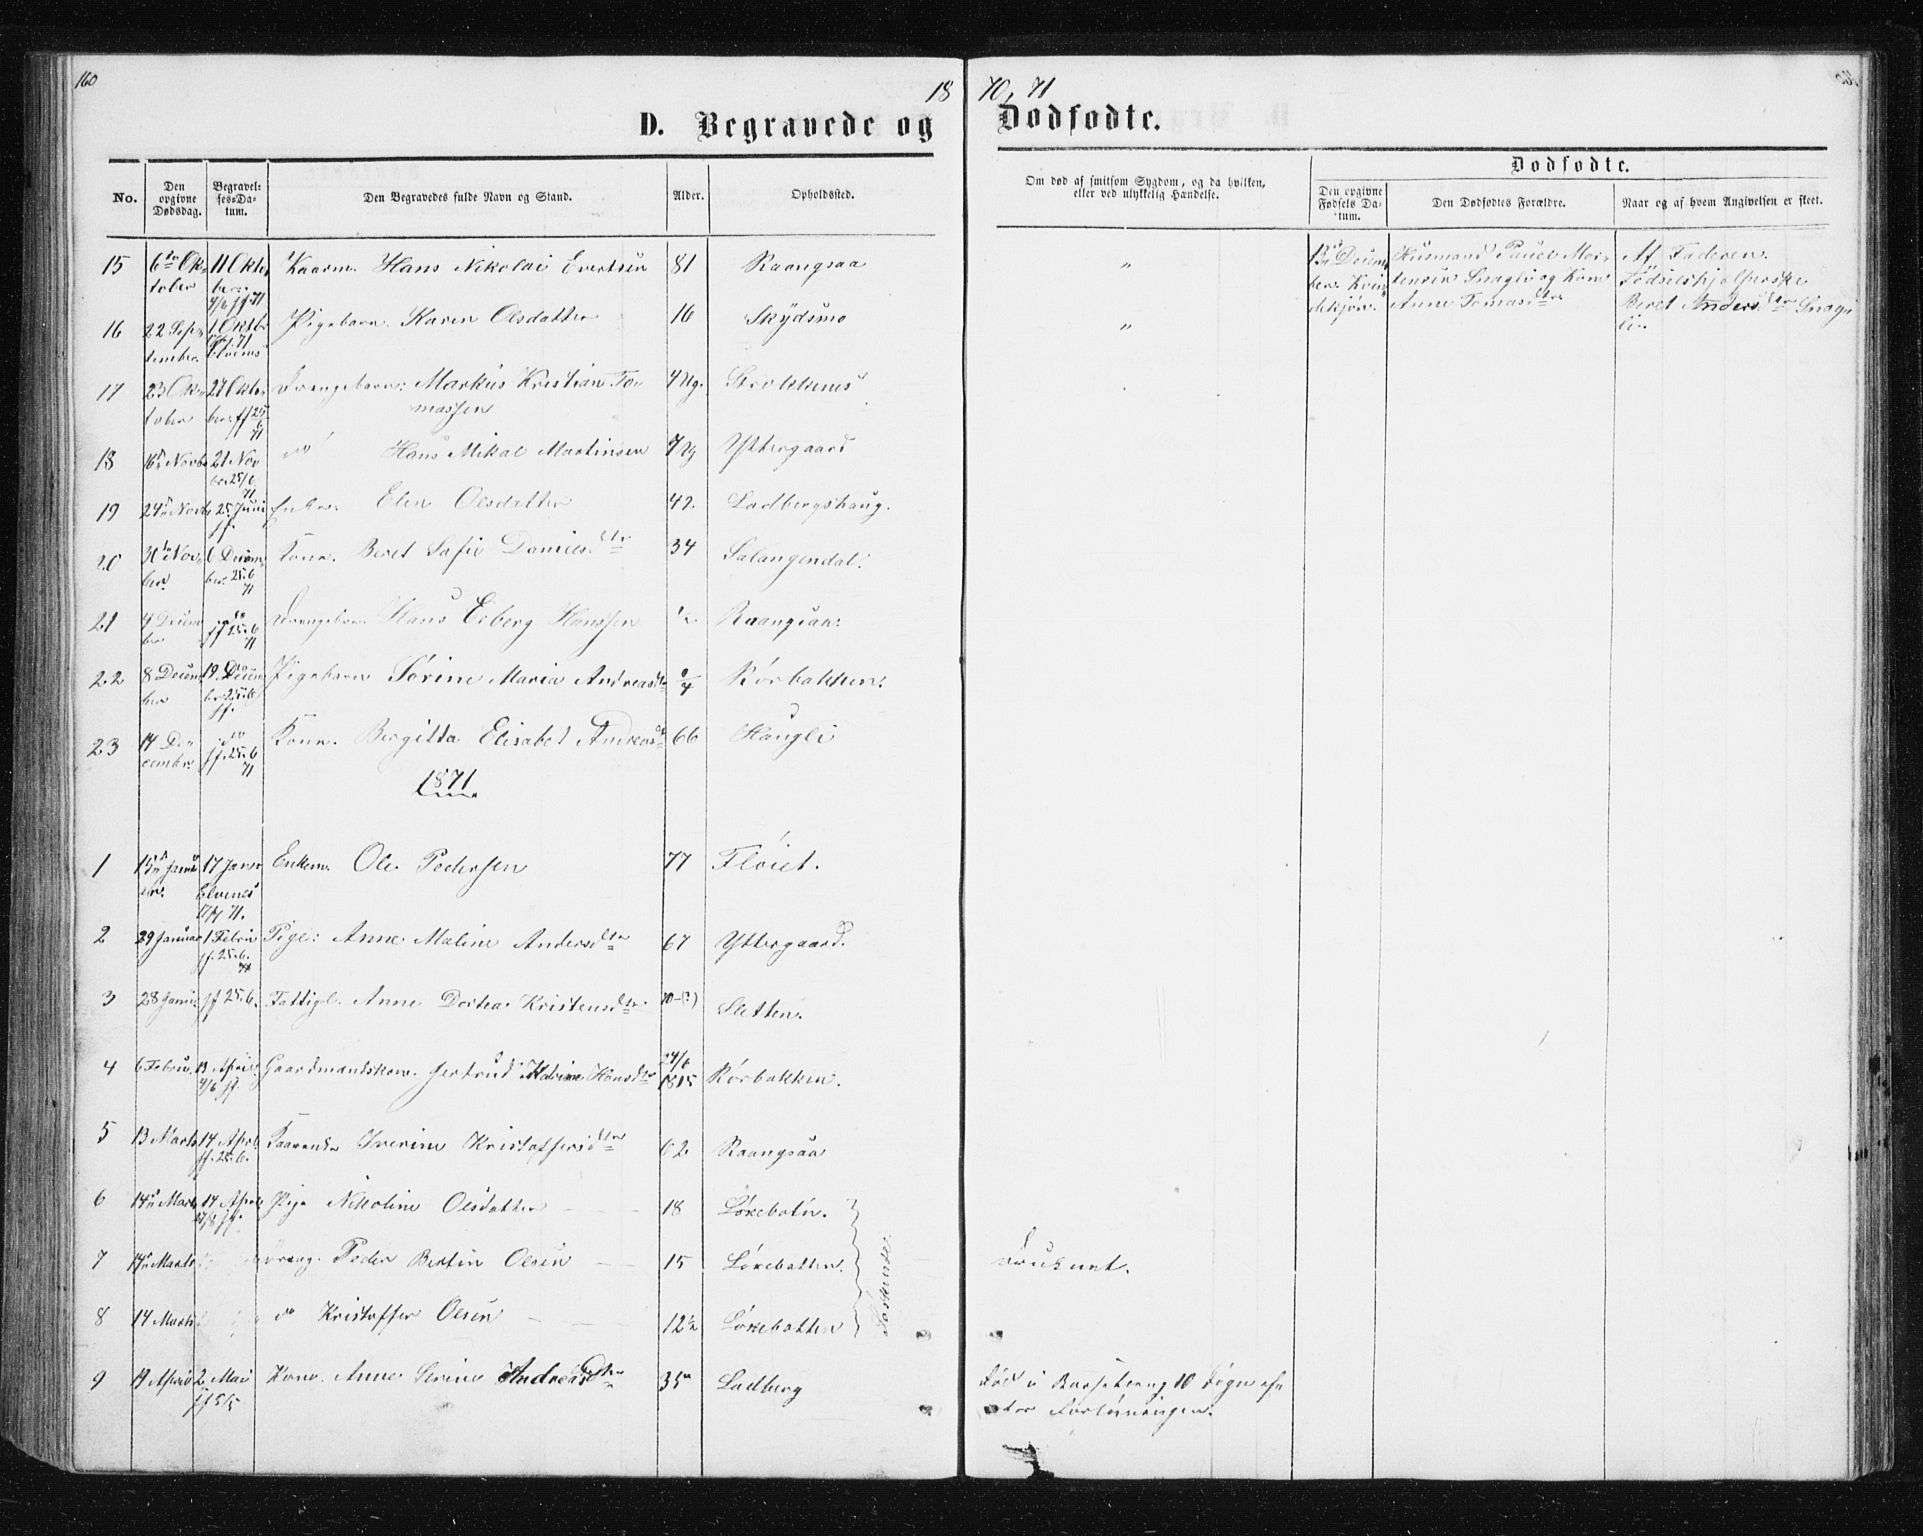 160
18 70, 71
D. Begravede og Dødfødte.
No. Den opgivne Dødsdag. Begravelses-Datum. Den Begravedes fulde Navn og Stand. Alder. Opholdssted. Om død af smitsom Sygdom, og da hvilken, eller ved ulykkelig Hændelse. Dødfødte.
Den opgivne Fødsels Datum. Den Dødfødtes Forældre. Naar og af hvem Angivelsen er skeet.
15 6te Oktober 11 Oktober 4/6 jf 71 Kaarm. Hans Nikolai Evertsen 81 Raangsaa "
13de December Kvindekjøn. Husmand Paul Mortensen Snagli og Kone Anne Tomasdtr Af Faderen. Fødselshjelperske Beret Andersdtr Snagli.
16 22 September 1 Oktbr 71 Elvenes Pigebarn Karen Olsdatter 16 Skydsmo "
17 23 Oktober 27 Oktober jf 25/6 71 Drengebarn: Markus Kristian Tomassen 4 Ug. Strokkenes
18 16de Novbr 21 Novbr. 25/6 71 do Hans Mikal Martinsen 7 Ug Yttergaard
19 24de Novbr 25. Juni jf. Enke: Elen Olsdatter 42. Ladbergshaug.
20 30te November 6 December. 25.6 71 Kone. Beret Sofie Danielsdtr 34 Salangendal.
21 4 December do jf 25.6 71 Drengebarn. Hans Eiberg Hanssen 1/2 Raangsaa.
22 8 December 19. December 25.6 jf. Pigebarn Sørine Maria Andreasdtr 1/4 Rørbakken.
23 14 Decembr. do jf. 25.6 71 Kone. Bergitta Elisabet Andreasdtr 66 Haugli
1871
1 15de Januar. 17 Januar Elvenes 71. Enkem. Ole Pedersen 77 Fløiet.
2 29 Januar 1 Febru jf. 25.6. 71 Pige: Anne Maline Andersdtr 67 Yttergaard.
3 28 Janu. jf 25.6. Fattigl. Anne Dortea Kristensdtr 70-(?) Sletten.
4 6 Febru. 13 April. 4/6 jf. Gaardmandskone. Gertrud Katrine Hansdtr 24/6 1815 Rørbakken.
5 13 Marts 14 April. jf. 25.6. Iverine Kristoffersdtr 62 Raangsaa
6 14de Marts 14 April jf. Pige Nikoline Olsdatter 18 Løxebotn.
7 14de Marts Dreng. Peder Bertin Olsen 15 Løxebotten. Søskende. Druknet.
8 14 Marts do Kristoffer Olsen 12 1/2 Løxebotten
9 19 April 2 Mai jf 5/5 Kone. Anne Serine Andreasdtr 35 Ladberg Død i Barselseng 10 Døgn efter Forløsningen.